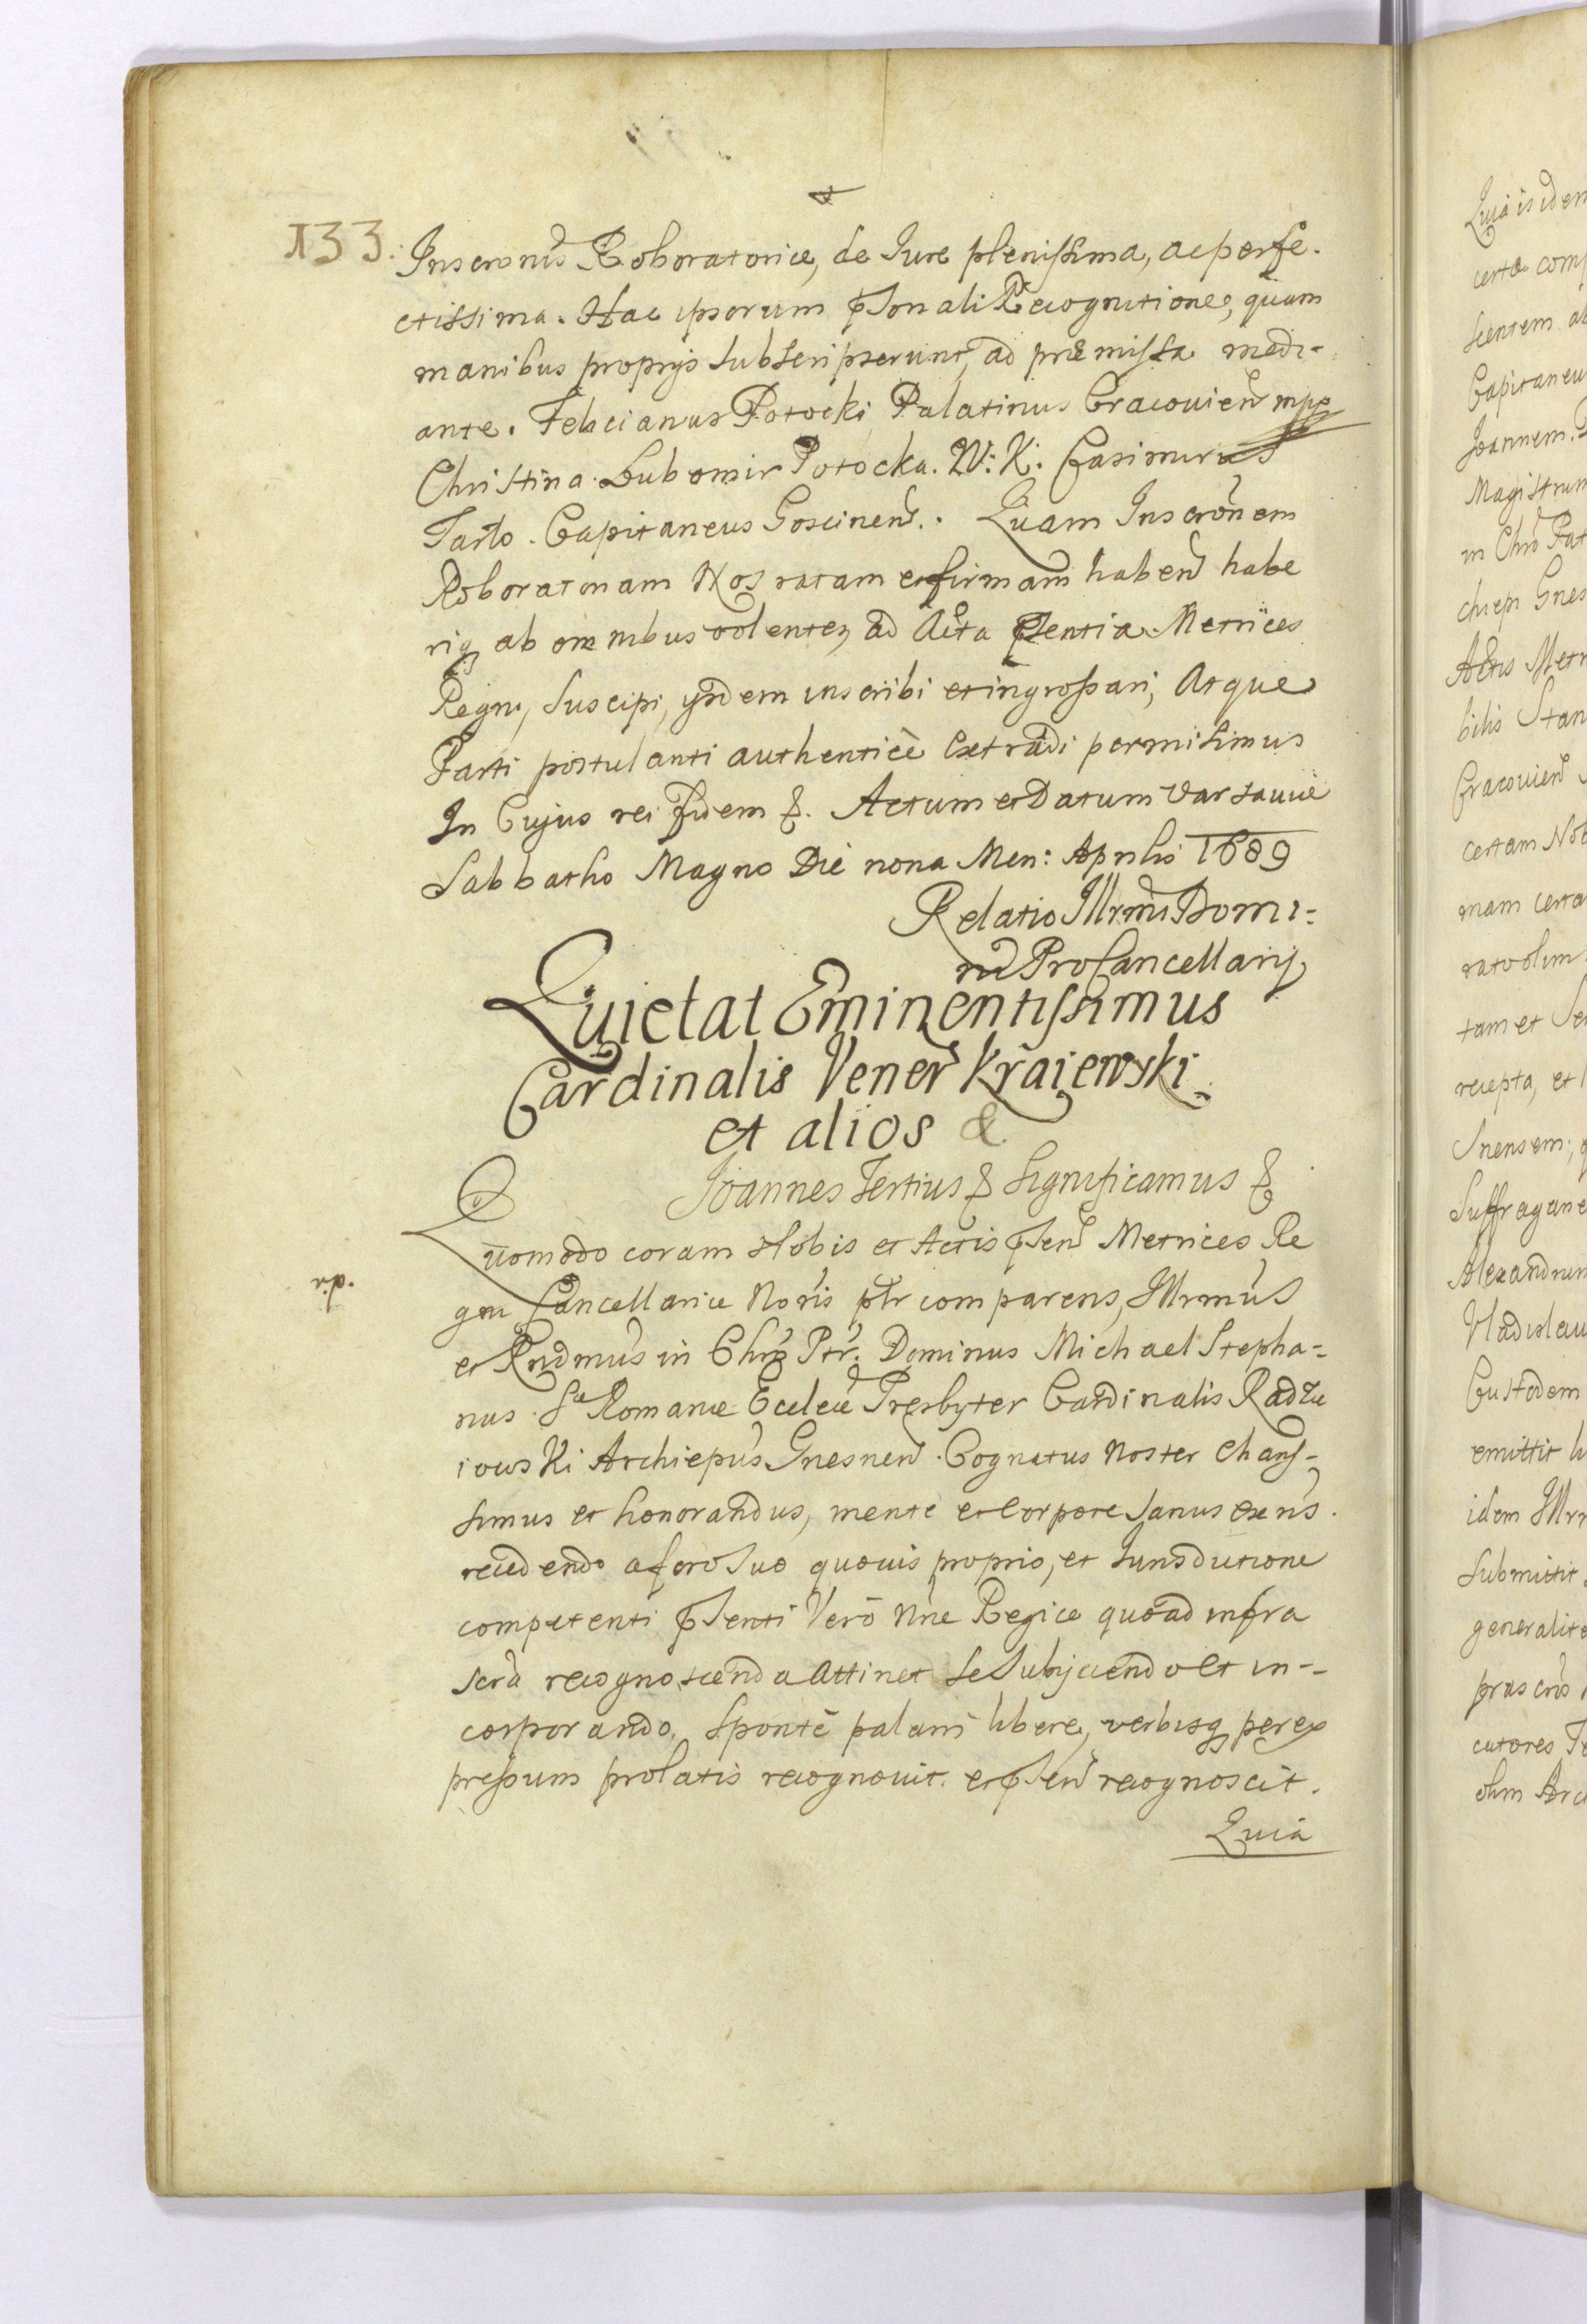 133.
Inscronis Roboratoriæ, de Iure plenissima, ac perfe-
ctissima. Hac ipsorum psonali Recognitione, quam
manibus proprijs subscripserunt, ad præmissa medi-
ante. Felicianus Potocki Palatinus Cracovien mpp
Christina Lubomir Potocka. W: K: Casimirus
Tarlo. Capitaneus Goscinen. Quam Inscronem
Roboratoriam Nos ratam et firmam haben habe
riq ab omnibus volentes, ad Acta psentia Metrices
Regni, suscipi, ijsdem inscribi et ingrossari, Atque
Parti postulanti authenticè extradi permisimus
In Cujus rei fidem &. Actum et Datum Varsaviæ
Sabbatho Magno Die nona Men: Aprilis 1689
Relatio Illrmi Domi-
ni ProCancellarij
Quietat Eminentissimus
Cardinalis Vener Kraiewski
et alios &
Joannes Tertius & Significamus &
Quomodo coram Nobis et Actis psen Metrices Re
gni Cancellariæ Noris plr comparens, Illrmus
et Rndmus in Chro Ptr. Dominus Michael Stepha-
nus Sæ Romanæ Eccleæ Presbyter Cardinalis Radzie
iowski Archiepus Gnesnen. Cognatus Noster Charis-
simus et honorandus, mente et Corpore Sanus exns.
recedendo a foro suo quovis proprio, et Iurisdictione
competenti psenti Verò Nrae Regiæ quoad infra
scrà recognoscenda attinet se subijciendo et in-
corporando, Sponte palam libere, verbisq per ex
pressum prolatis recognovit. et psen recognoscit.
Quia